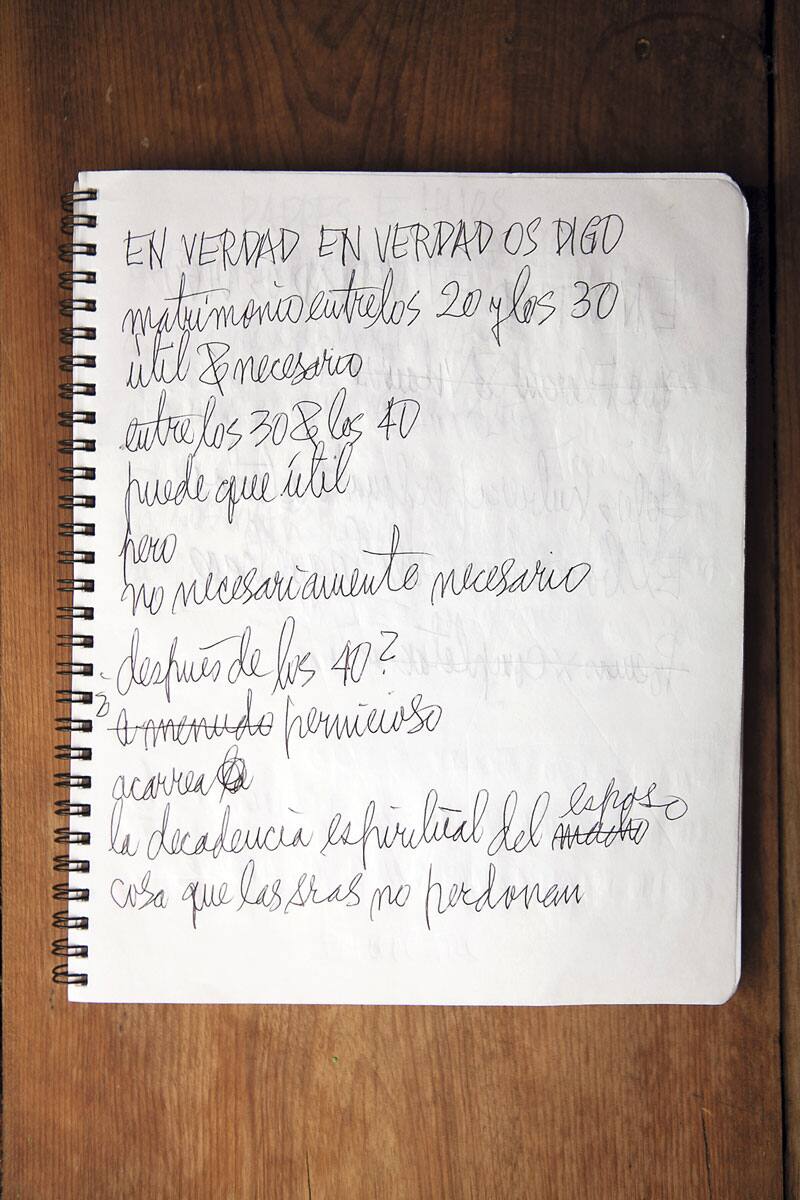 EN VERDAD EN VERDAD OS DIGO
matrimonio entre los 20 y los 30
útil & necesario
entre los 30 & los 40
puede que útil
pero
no necesariamente necesario
¿después de los 40?
a menudo pernicioso
acarrea
la decadencia espiritual del macho esposo
cosa que las sras no perdonan